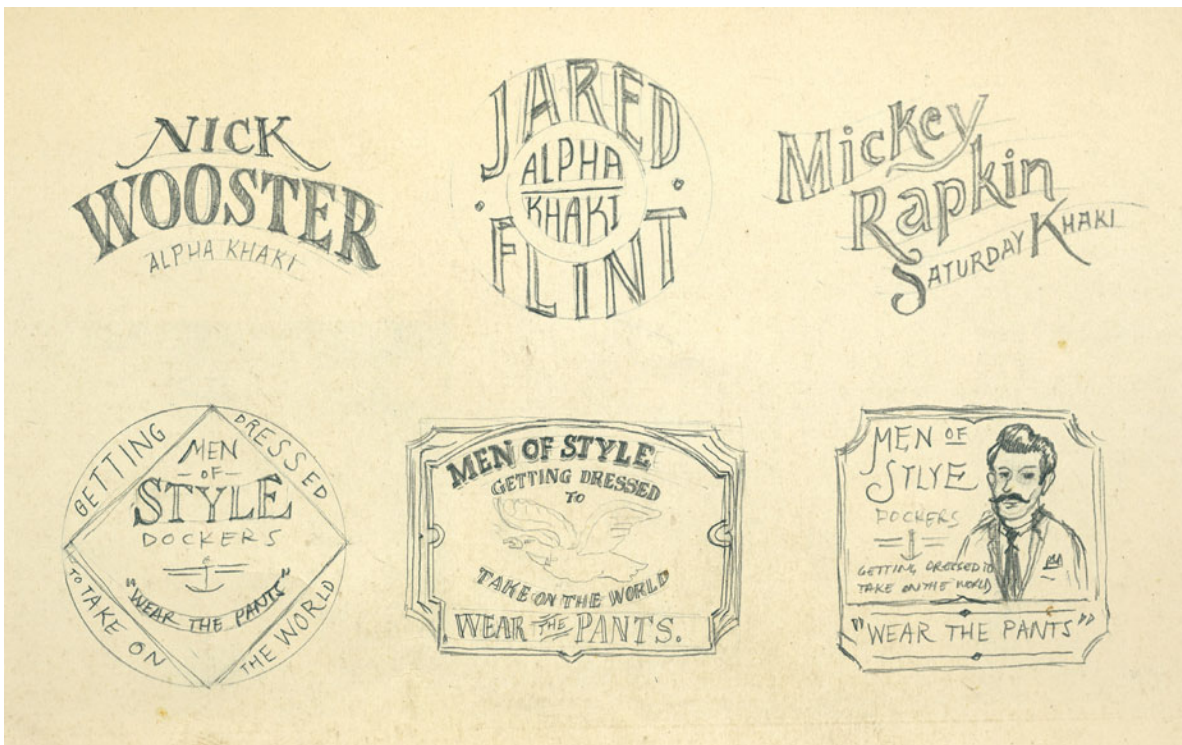 NICK
WOOSTER
ALPHA KHAKI
JARED
ALPHA
KHAKI
FLINT
Mickey
Rapkin
SATURDAY KHAKI
GETTING DRESSED
MEN
OF
STYLE
DOCKERS
"WEAR THE PANTS"
TO TAKE ON THE WORLD
MEN OF STYLE
GETTING DRESSED
TO
TAKE ON THE WORLD
WEAR THE PANTS.
MEN OF
STLYE
DOCKERS
GETTING DRESSED TO
TAKE ON THE WORLD
"WEAR THE PANTS"